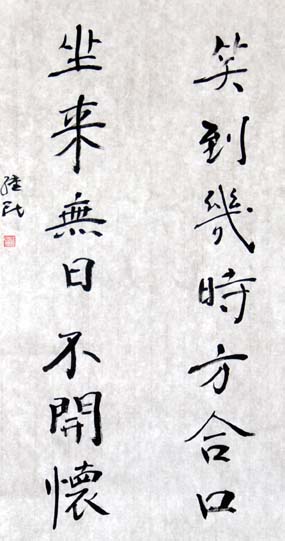 笑到幾時方合口
坐来無日不開懷